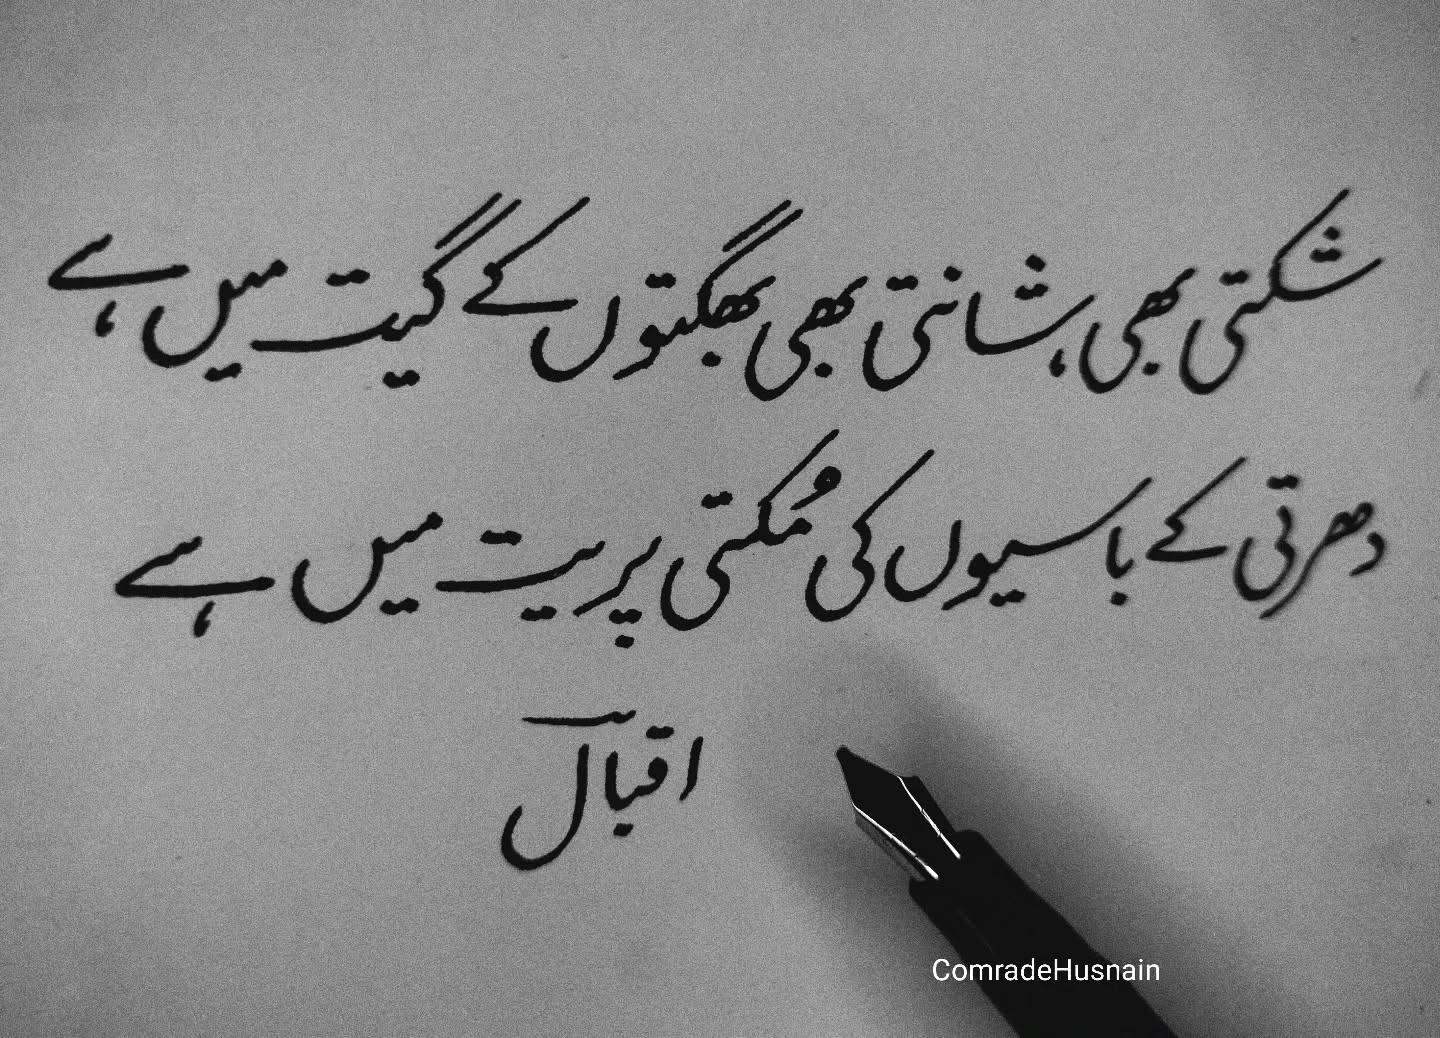 شکتی بھی، شانتی بھی بھگتوں کے گیت میں ہے
دھرتی کے باسیوں کی مُکتی پریت میں ہے
اقبالؔ
ComradeHusnain